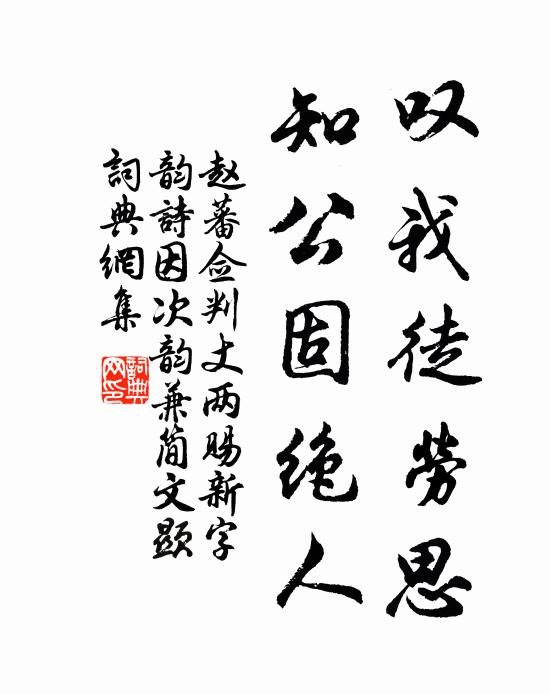 叹我徒劳思
知公固绝人
赵蕃佥判丈两赐新字
韵詩因次韵兼简文顕
詞典網集
詞典網印